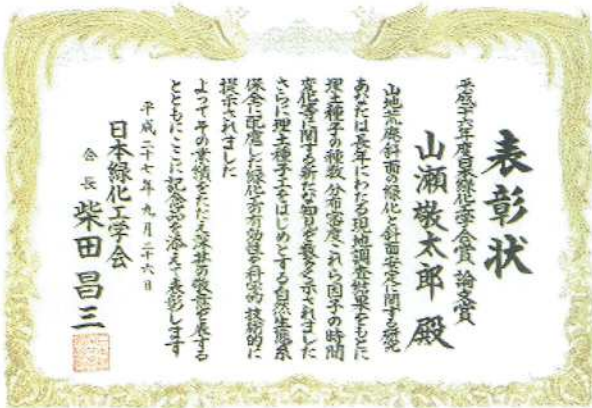 表彰状
平成二十六年度日本緑化工学会賞 論文賞
山瀬敬太郎 殿
山地荒廃斜面の緑化と斜面安定に関する研究
あなたは長年にわたる現地調査結果をもとに
埋土種子の種数、分布密度、これら因子の時間
変化等に関する新たな知見を数多く示されました
さらに埋土種子工をはじめとする自然生態系
保全に配慮した緑化工の有効性を科学的、技術的に
提示されました
よってその業績をたたえ深甚の敬意を表する
とともに、ここに記念品を添えて表彰します
平成二十七年九月二十六日
日本緑化工学会
会長 柴田昌三